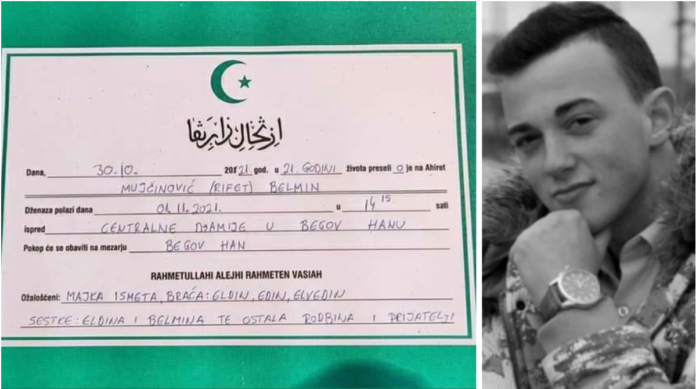 Dana, 30.10. 20121. god. u 21. GODINI života preseli O je na Ahiret
MUJČINOVIĆ (RIFET) BELMIN
Dženaza polazi dana 04.11.2021. u 14 15 sati
ispred CENTRALNE DŽAMIJE U BEGOV HANU
Pokop će se obaviti na mezarju BEGOV HAN
RAHMETULLAHI ALEJHI RAHMETEN VASIAH
Ožalošćeni: MAJKA ISMETA, BRAĆA: ELDIN, EDIN, ELVEDIN
SESTKE: ELDINA I BELMINA TE OSTALA RODBINA I PRIJATELJI